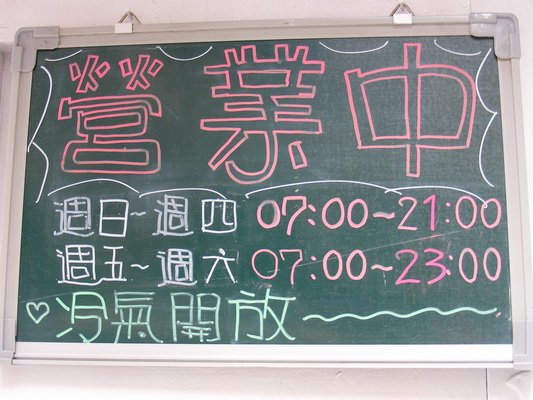 營業中
週日~週四 07:00~21:00
週五~週六 07:00~23:00
♡冷氣開放